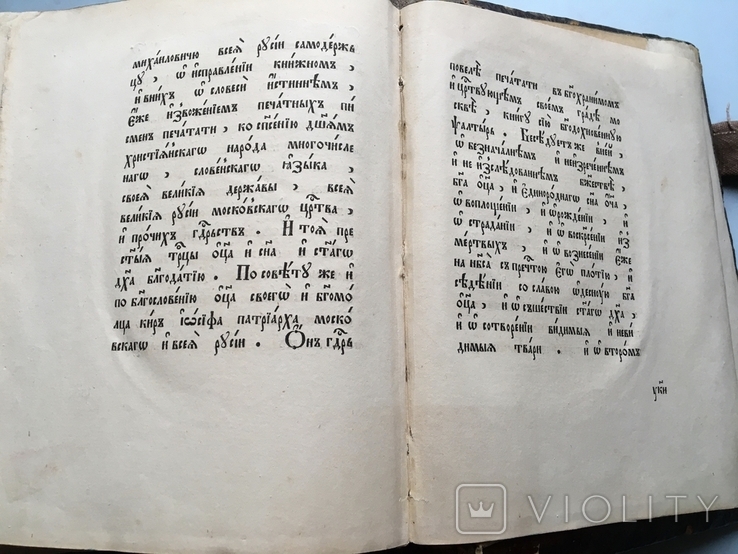 миха́иловичю всеѧ̀ рꙋсі́и самоде́ржъ
цꙋ , ѡ҆ и҆справле́нїи кни́жномъ ,
и҆ в ни́хъ ѡ҆ словесѝ и҆́стиннѣмъ ,
є҆́же и҆з̾ѡбраже́нїемъ печа́тныхъ пи
сменъ печа́тати , ко спасе́нїю дꙋша́мъ
христїѧ́нскагѡ наро́да многочи́сле
нагѡ , слове́нскагѡ ꙗ҆зы́ка ,
своеѧ̀ вели́кїѧ держа́вы , всеѧ̀
вели́кїѧ рꙋсі́и моско́вскагѡ црⷭ҇тва ,
и҆ про́чихъ гдⷭ҇рьствъ . И҆ тоѧ̀ пре
ст҃ы́ѧ трⷪ҇цы ѻ҆ц҃а̀ и҆ сн҃а и҆ ст҃а́гѡ
дх҃а благода́тїю . По совѣ́тꙋ же и҆
по благослове́нїю ѻ҆ц҃а̀ своегѡ̀ и҆ бг҃омо́
лца кѵръ і҆ѡ́сифа патрїа́рха моско́
вскагѡ и҆ всеѧ̀ рꙋсі́и . Ѻ҆нъ гдⷭ҇рь
повелѣ̀ печа́тати въ бг҃охрани́момъ
и҆ црⷭ҇твꙋющемъ своемъ гра́дѣ мо
сквѣ̀ , кни́гꙋ сїю̀ бг҃одохнове́ннꙋю
ѱалты́рь . Бесѣ́дꙋетъ же в не́й ,
ѡ҆ безнача́лнѣмъ и҆ неизрече́ннѣмъ
и҆ не и҆з̾слѣ́дованнѣмъ бж҃ествѣ̀ ,
бг҃а ѻ҆ц҃а̀ , и҆ є҆диноро́днагѡ сн҃а ѻ҆́ч҃а ,
ѡ҆ воплоще́нїи , и҆ ѡ҆ рожде́нїи , и҆
ѡ҆ страда́нїи , и҆ ѡ҆ воскрⷭ҇е́нїи и҆з̾
ме́ртвыхъ , и҆ ѡ҆ вознесе́нїи є҆́же
на нб҃са̀ с пречⷭ҇тою є҆гѡ̀ пло́тїю , и҆
сѣдѣ́нїи со сла́вою ѡ҆деснꙋ́ю бг҃а
ѻ҆ц҃а̀ , и҆ ѡ҆ съше́ствїи ст҃а́гѡ дх҃а ,
и҆ ѡ҆ сотворе́нїи ви́димыѧ и҆ неви́
димыѧ тва́ри . и҆ ѡ҆ второ́мъ
VIOLITY